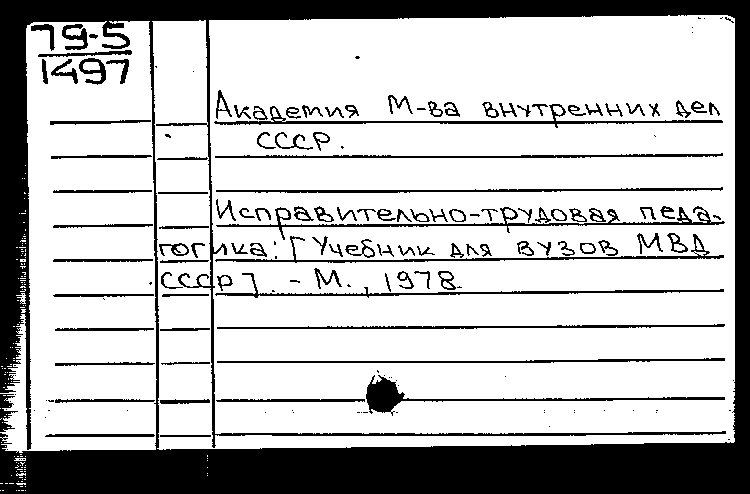 79-5
1497
Академия М-ва внутренних дел
СССР.
Исправительно-трудовая педа-
гогика: [Учебник для вузов МВД
СССР]. - М., 1978